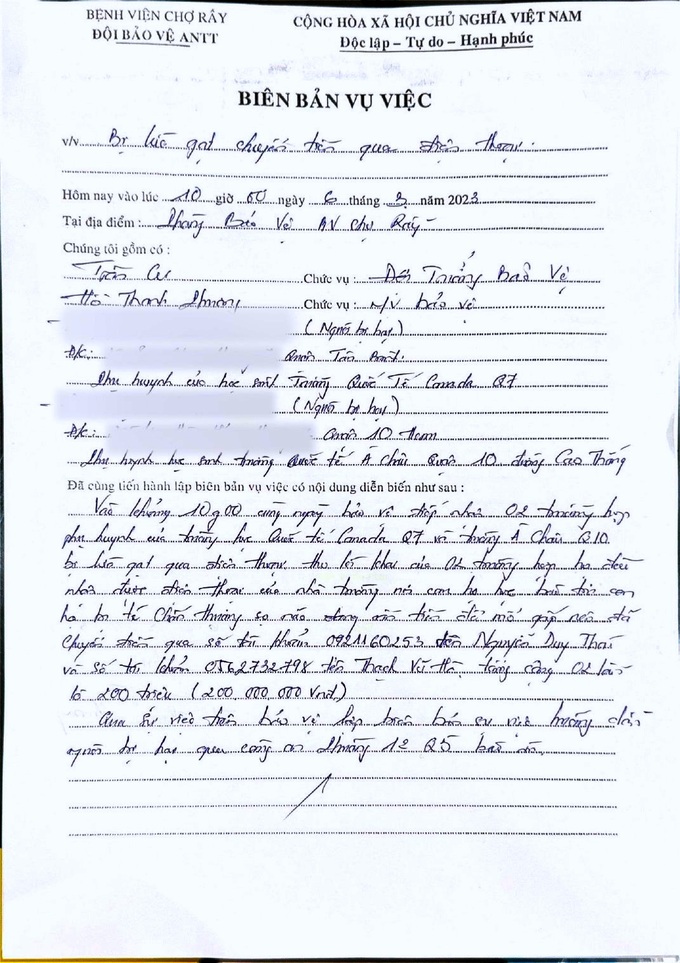 BỆNH VIỆN CHỢ RẪY
ĐỘI BẢO VỆ ANTT
CỘNG HÒA XÃ HỘI CHỦ NGHĨA VIỆT NAM
Độc lập – Tự do – Hạnh phúc
BIÊN BẢN VỤ VIỆC
v/v Bị lừa gạt chuyển tiền qua điện thoại.
Hôm nay vào lúc 10 giờ 00 ngày 6 tháng 3 năm 2023
Tại địa điểm : Phòng Bảo Vệ BV Chợ Rẫy
Chúng tôi gồm có :
Trần Chức vụ : Đội Trưởng Bảo Vệ
Hồ Thanh Phong Chức vụ : N/V bảo vệ
(Người bị hại)
Đ/c: Quận Tân Bình.
Phụ huynh của học sinh Trường Quốc Tế Canada Q7
(Người bị hại)
Đ/c: Quận 10 Hcm
Phụ huynh học sinh trường Quốc tế Á Châu Quận 10 đường Cao Thắng
Đã cùng tiến hành lập biên bản vụ việc có nội dung diễn biến như sau :
Vào khoảng 10g00 cùng ngày bảo vệ tiếp nhận 02 trường hợp
phụ huynh của trường học Quốc tế Canada Q7 và trường Á Châu Q10
bị lừa gạt qua điện thoại. theo lời khai của 02 trường hợp họ đều
nhận được điện thoại của nhà trường nói con họ học bài tại
họ bị té Chấn thương sọ não đang cần tiền để mổ gấp nên đã
chuyển tiền qua số tài khoản 0921160253 tên Nguyễn Duy Thái
và số tài khoản 0562732798 tên Thạch Vũ tổng cộng 02 lần
là 200 triệu (200.000.000 Vnđ)
Qua sự việc trên bảo vệ lập biên bản sự việc hướng dẫn
người bị hại qua công an Phường 12 Q5 báo án.